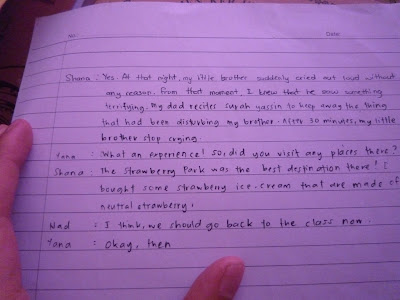 No. Date
Shana : Yes. At that night, my little brother suddenly cried out loud without
any reason. From that moment, I knew that he saw something
terrifying. My dad recites surah yassin to keep away the thing
that had been disturbing my brother. After 30 minutes, my little
brother stop crying.
Yana : What an experience! So, did you visit any places there?
Shana : The Strawberry Park was the best destination there! I
bought some strawberry ice-cream that are made of
neutral strawberry.
Nad : I think, we should go back to the class now.
Yana : Okay, then